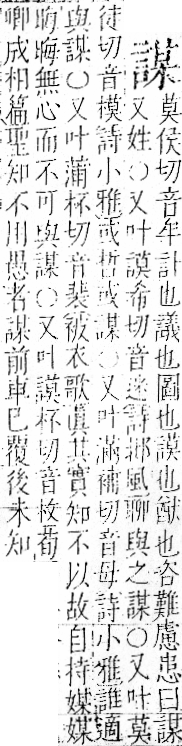 謀
莫侯切音牟計也議也圖也謨也猷也咨難慮患曰謀
又姓○又叶謨希切音迷詩邶風聊與之謀○又叶莫
徒切音模詩小雅或哲或謀○又叶滿補切音母詩小雅誰適
與謀○又叶蒲杯切音裴被衣歌眞其實知不以故自持媒媒
晦晦無心而不可與謀○又叶謨杯切音枚荀
卿成相篇聖知不用愚者謀前車已覆後未知